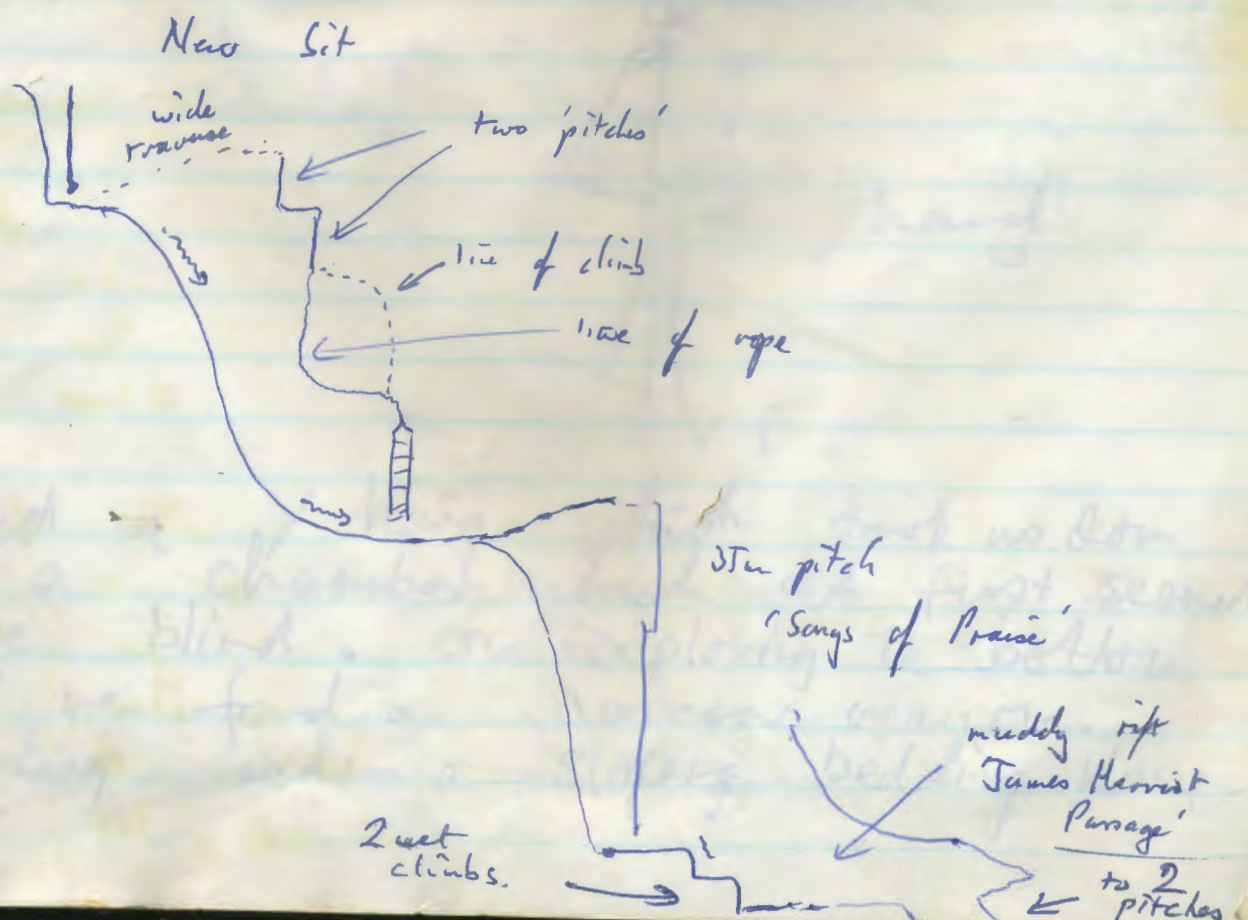 New Sit
wide
traverse
two 'pitches'
line of climb
line of rope
35m pitch
'Songs of Praise'
muddy rift
James Herriot
Passage'
2 wet
climbs.
to 2
pitches